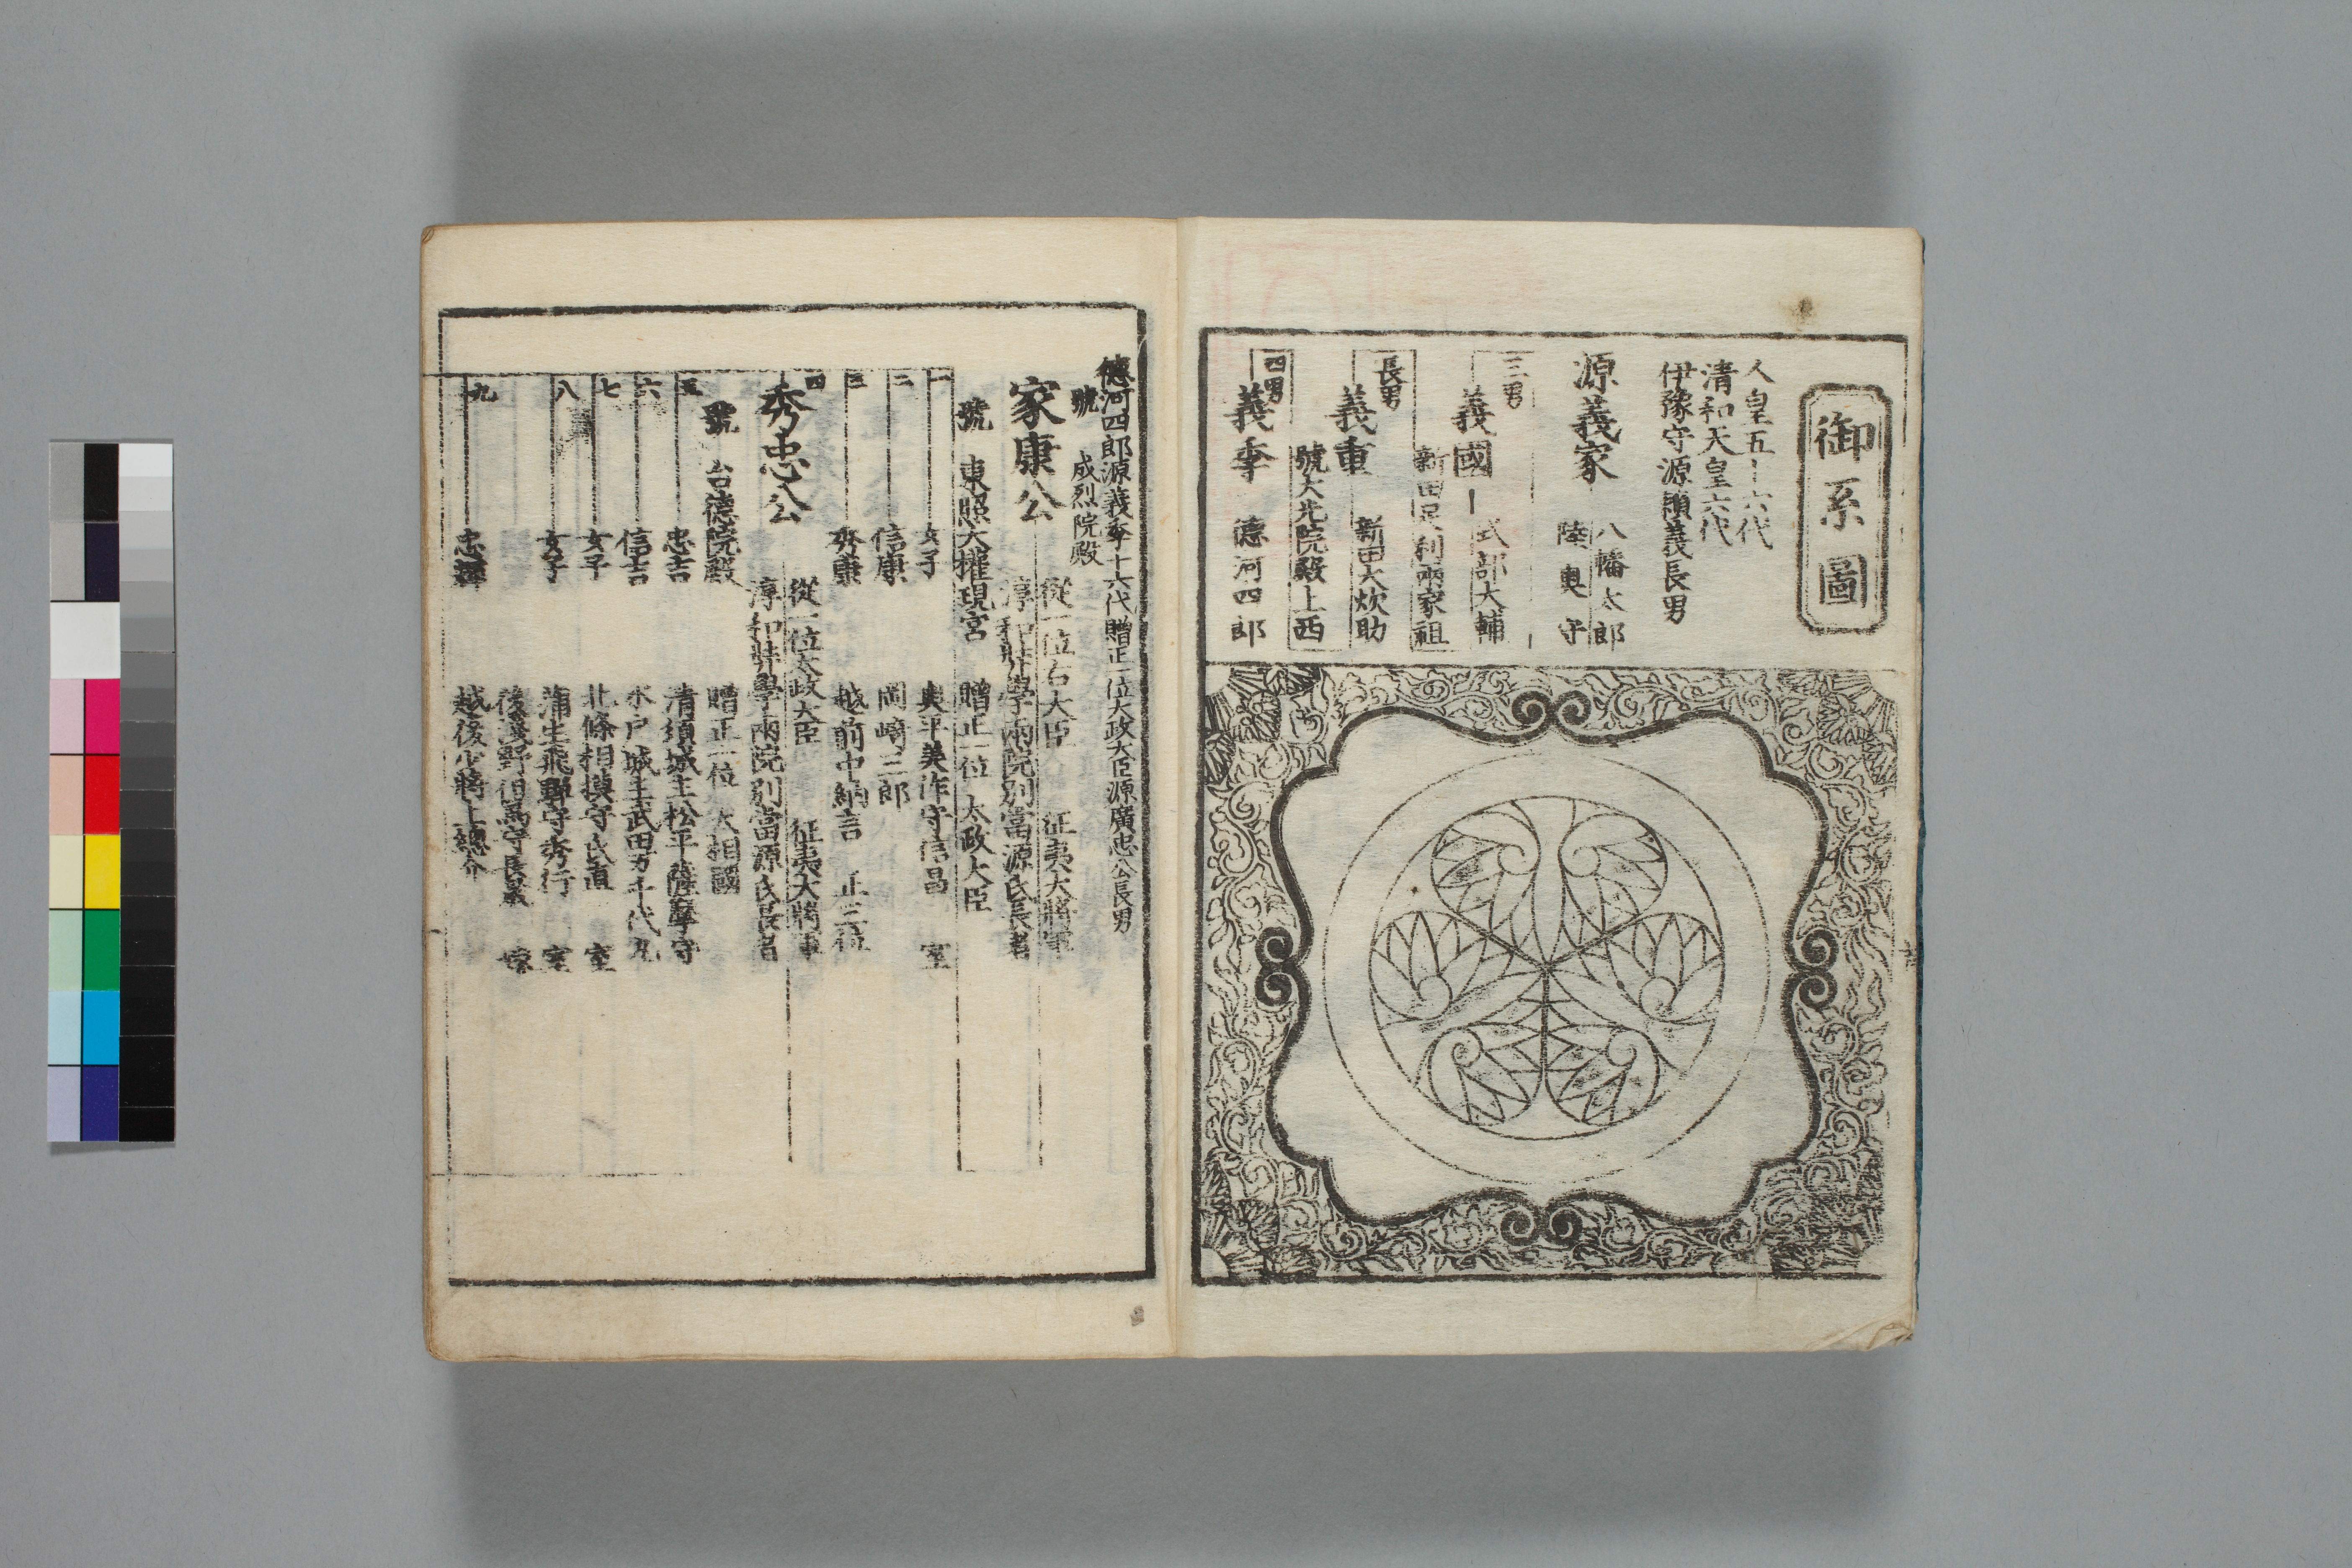 御系圖
人皇五十六代
清和天皇六代
伊豫守源頼義長男
源義家
八幡太郎
陸奥守
三男
義國
式部大輔
新田足利兩家祖
長男
義重
新田大炊助
號大光院殿上西
四男
義季
德河四郎
德河四郎源義季十六代贈正一位大政大臣源廣忠公長男
號 成烈院殿
家康公
從一位右大臣 征夷大將軍
淳和弉學兩院別當源氏長者
號 東照大權現宮 贈正一位 太政大臣
一 女子 奥平美作守信昌 室
二 信康 岡崎三郎
三 秀康 越前中納言 正三位
四
秀忠公
從一位太政大臣 征夷大將軍
淳和弉學兩院別當源氏長者
號 台德院殿 贈正一位 大相國
五 忠吉 清須城主松平薩摩守
六 信吉 水戸城主武田万千代丸
七 女子 北條相摸守氏直 室
八 女子 蒲生飛驒守秀行 室
後淺野但馬守長晟 嫁
九 忠輝 越後少將上總介